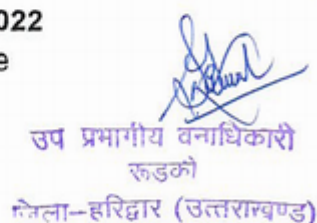 022
e
उप प्रभागीय वनाधिकारी
रूड़की
जिला-हरिद्वार (उत्तराखण्ड)